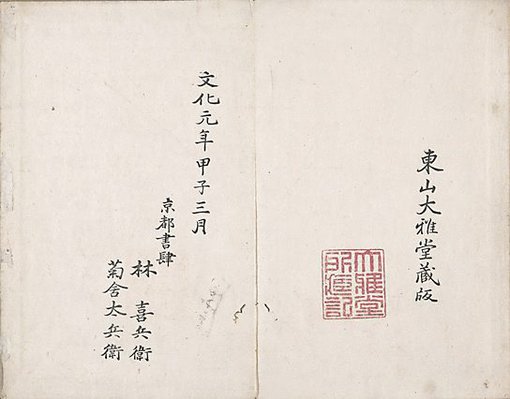 東山大雅堂蔵版
大雅堂
所蔵記
文化元年甲子三月
京都書肆
林喜兵衛
菊舎太兵衛